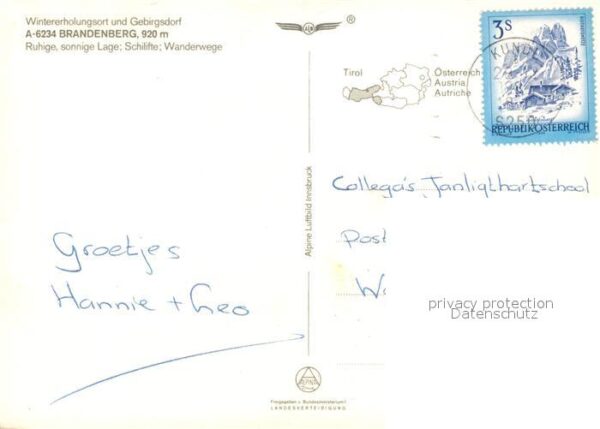 Wintererholungsort und Gebirgsdorf
A-6234 BRANDENBERG, 920 m
Ruhige, sonnige Lage; Schilifte; Wanderwege
®
3S
KUND
Tirol
Österreich
Austria
Autriche
6250
REPUBLIK ÖSTERREICH
Alpine Luftbild Innsbruck
Collega's, Janligthartschool
Post
Groetjes
Hannie + Geo
privacy protection
Datenschutz
ALPINE
Freigegeben v. Bundesministerium f.
LANDESVERTEIDIGUNG